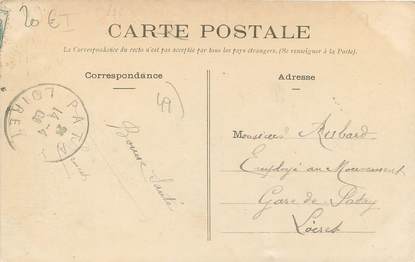 20 €
CARTE POSTALE
La Correspondance du recto n'est pas acceptée par tous les pays étrangers. (Se renseigner à la Poste).
Correspondance
Adresse
49
PATAY
14 -4
LOIRET
Bonne Santé
Monsieur Aubard
Employé au Mouvement
Gare de Patay
Loiret